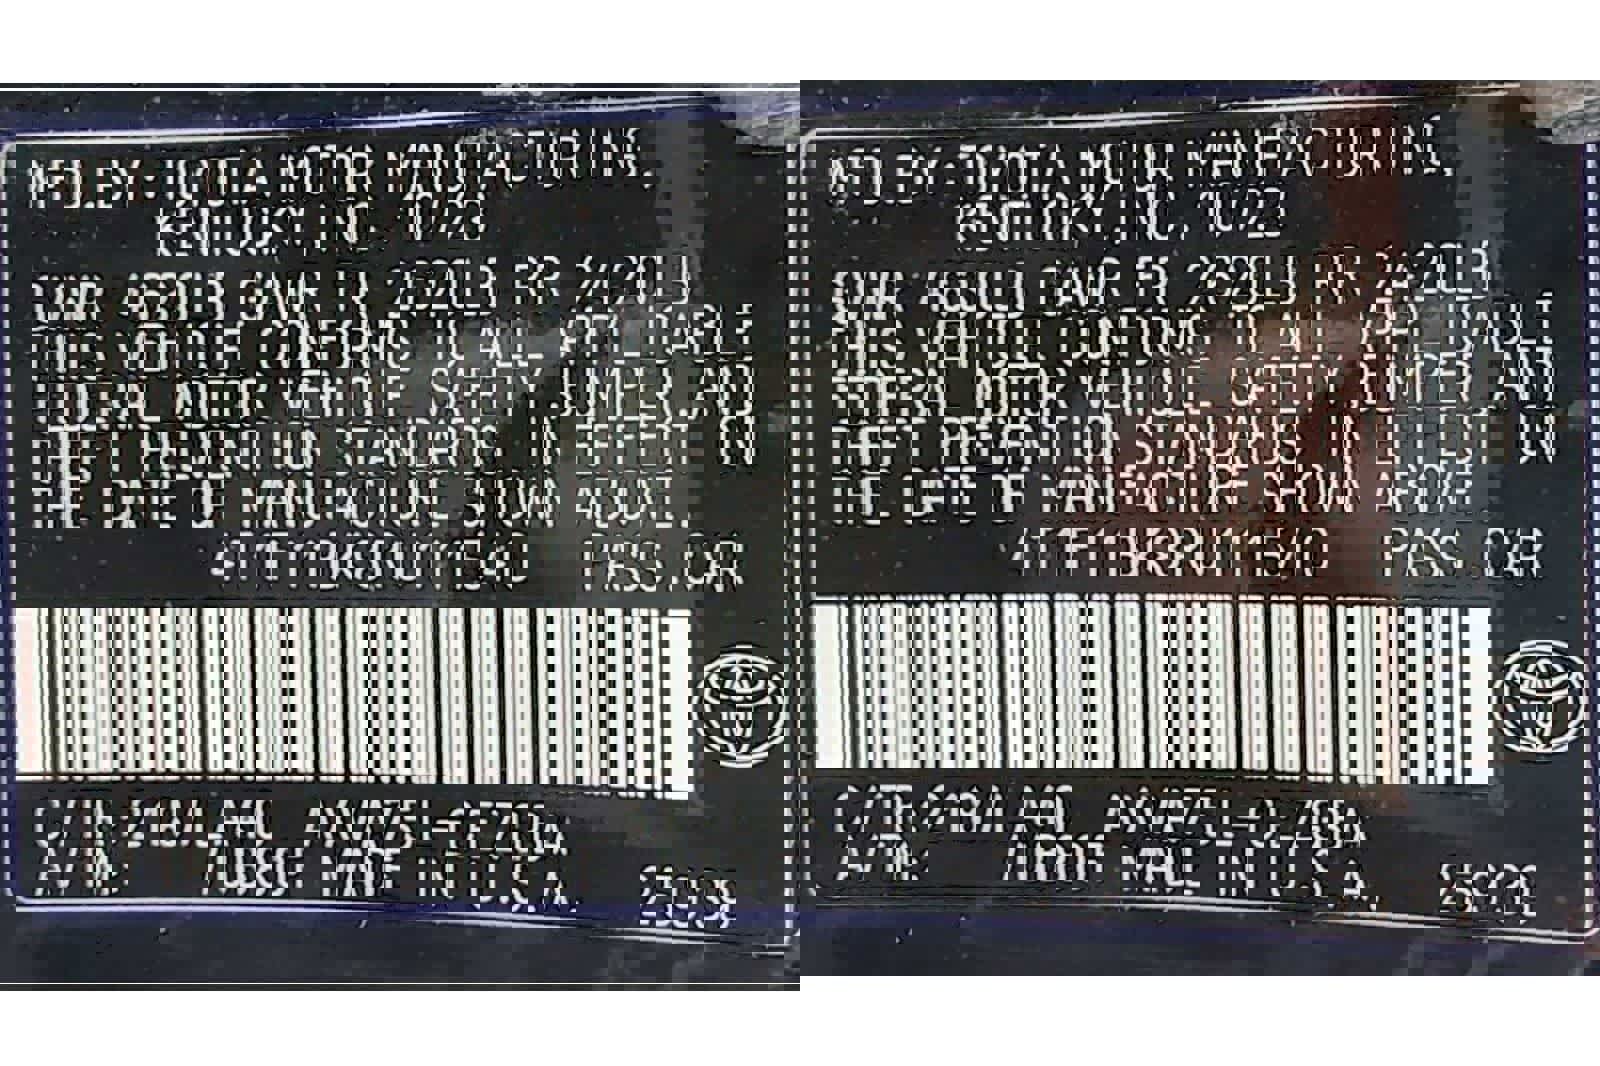 MFD.BY:TOYOTA MOTOR MANUFACTURING,
KENTUCKY,INC. 10/23
GVWR LB GAWR FR 2620LB RR 2420LB
THIS VEHICLE CONFORMS TO ALL APPLICABLE
FEDERAL MOTOR VEHICLE SAFETY,BUMPER,AND
THEFT PREVENTION STANDARDS IN EFFECT ON
THE DATE OF MANUFACTURE SHOWN ABOVE.
PASS.CAR
C/TR:218/LA40
A/TM: MADE IN U.S.A.
MFD.BY:TOYOTA MOTOR MANUFACTURING,
KENTUCKY,INC. 10/23
GVWR LB GAWR FR 2620LB RR 2420LB
THIS VEHICLE CONFORMS TO ALL APPLICABLE
FEDERAL MOTOR VEHICLE SAFETY,BUMPER,AND
THEFT PREVENTION STANDARDS IN EFFECT ON
THE DATE OF MANUFACTURE SHOWN ABOVE.
PASS.CAR
C/TR:218/LA40
A/TM: MADE IN U.S.A.